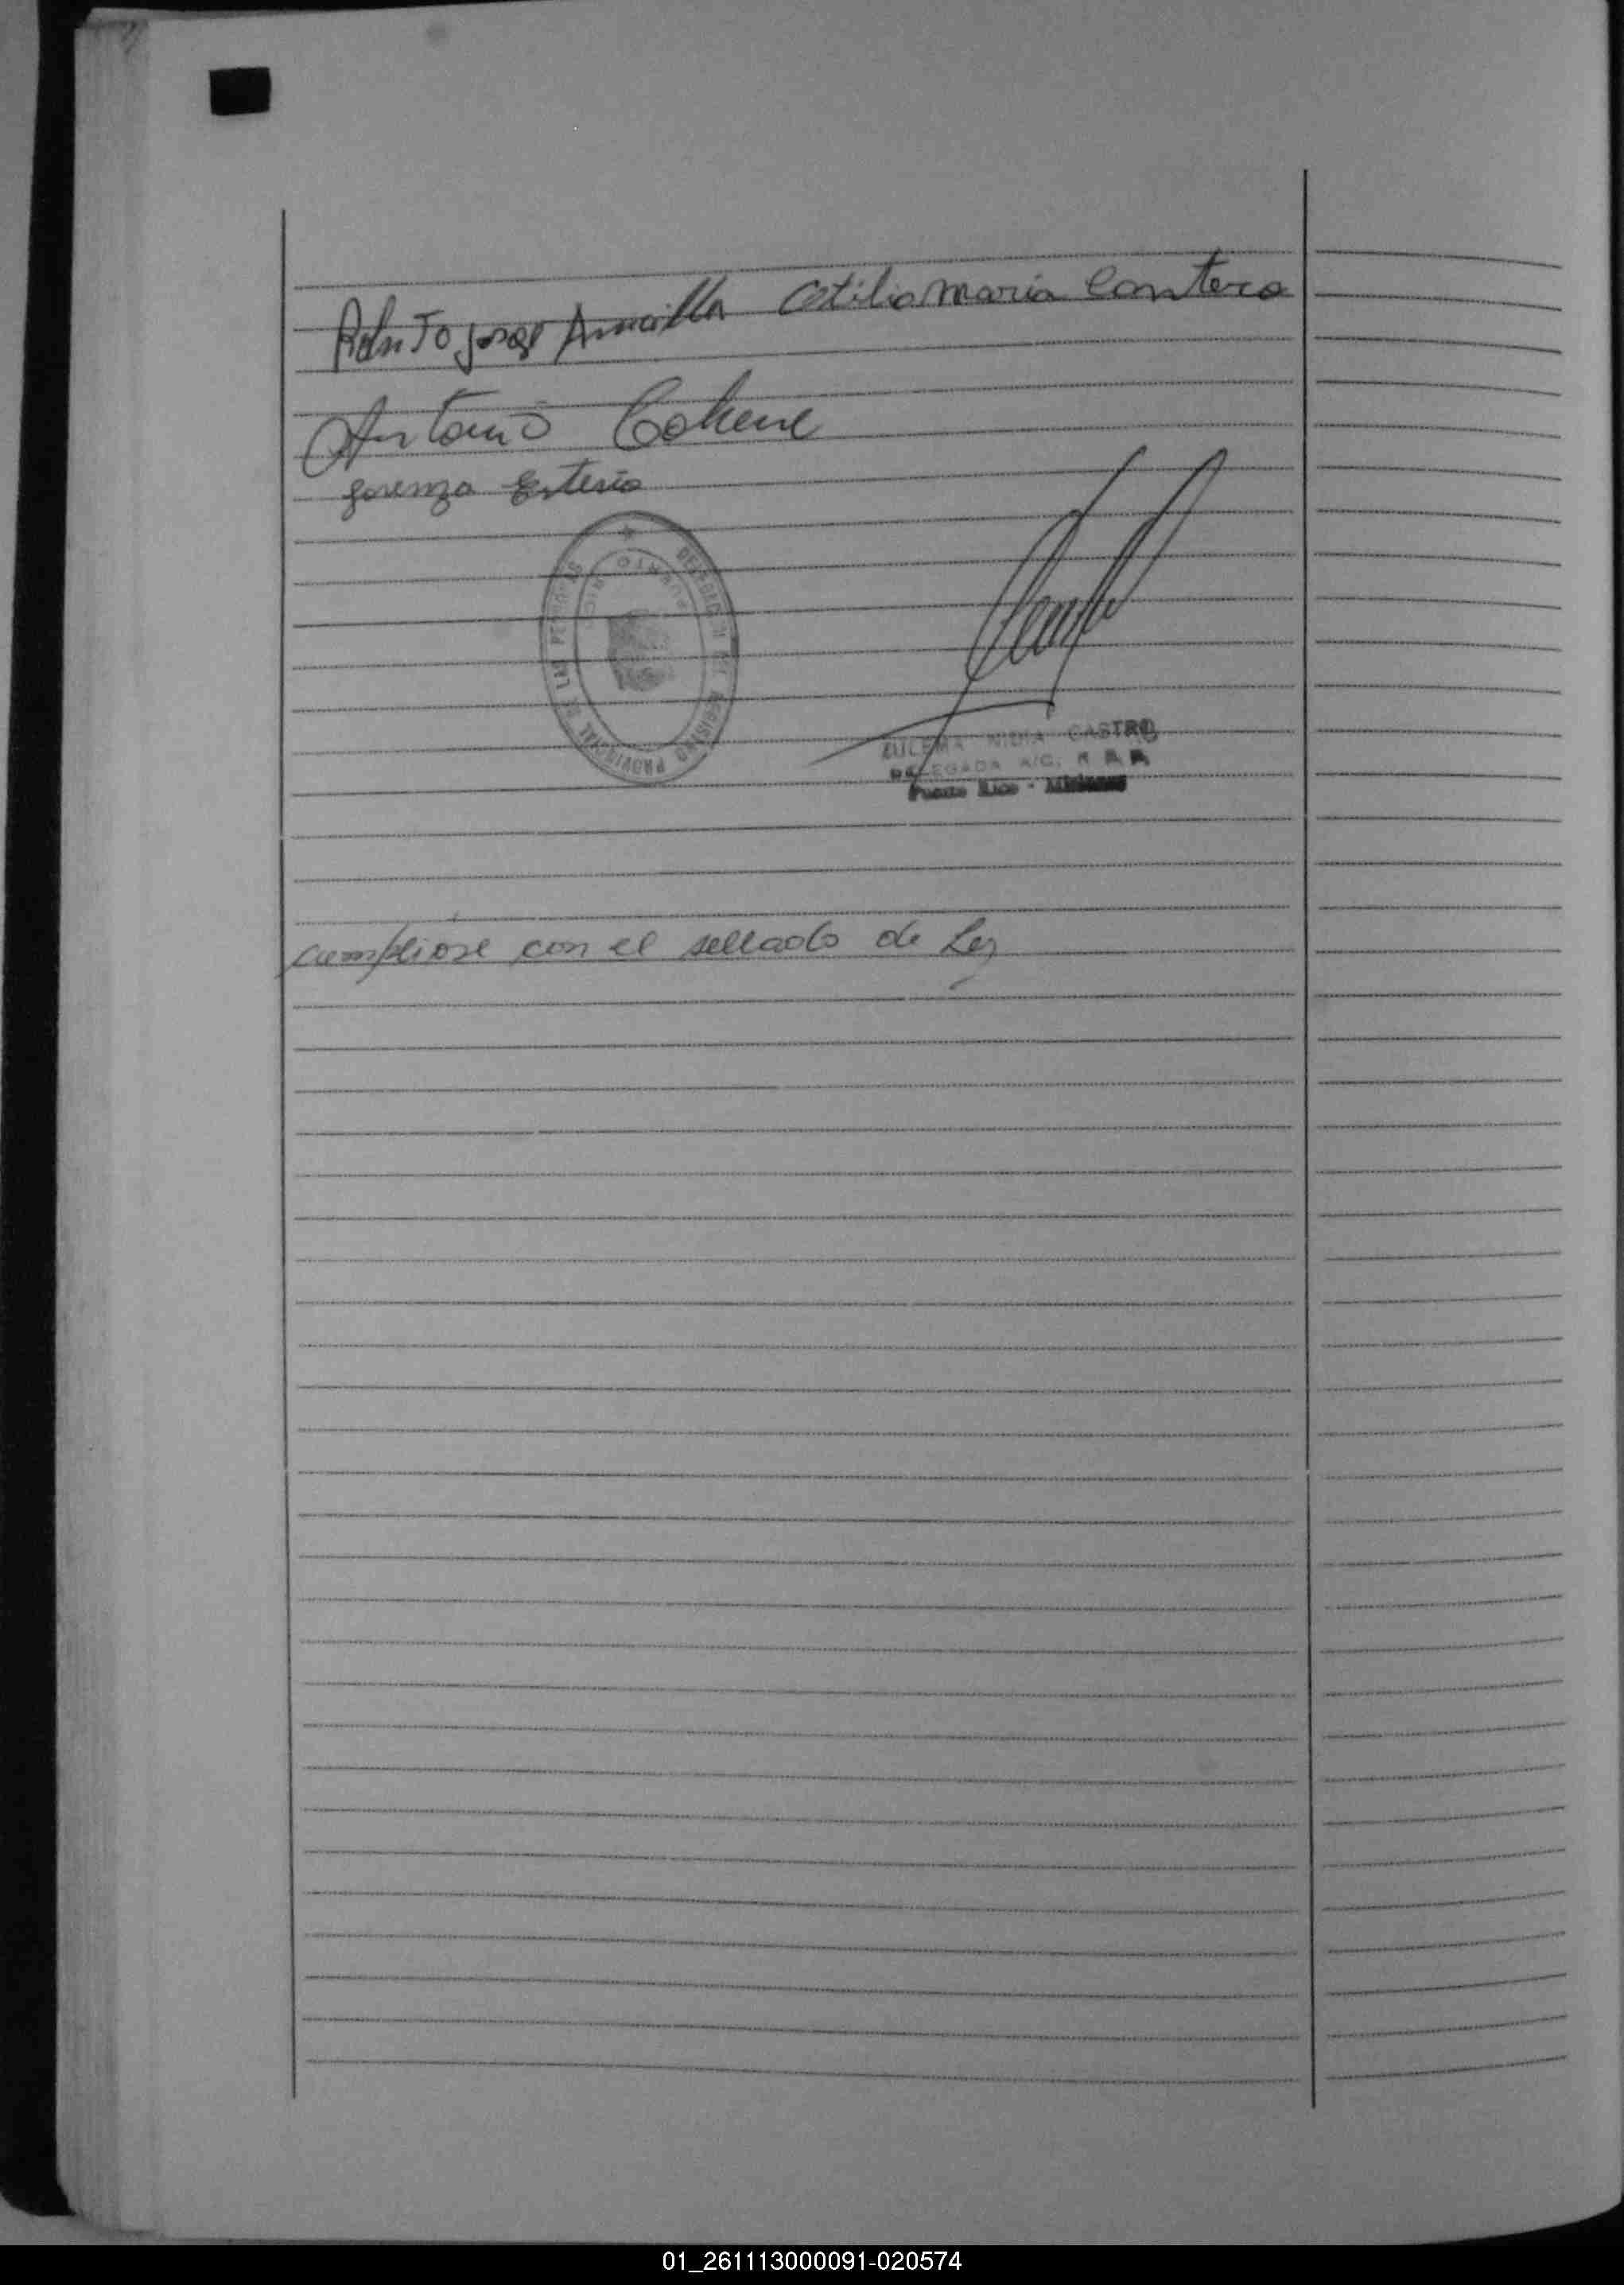 Jose Amarilla Otilia Maria Cantero
Antonio Cohene
Lorenza Esteria
DELEGACION DEL REGISTRO PROVINCIAL DE LAS PERSONAS
PUERTO RICO
ZULEMA NIDIA CASTRO
DELEGADA A/C.
Puerto Rico - Misiones
cumpliose con el sellado de Ley
01_261113000091-020574